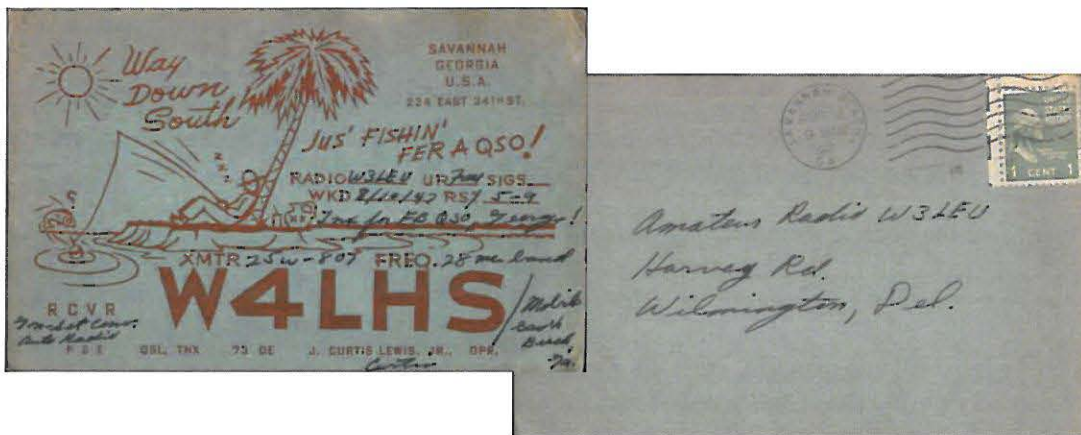 Way
Down
South
SAVANNAH
GEORGIA
U.S.A.
224 EAST 34TH ST.
Jus' FISHIN'
FER A QSO!
ZZZ
RADIO W3LEU UR Fone SIGS
WKD 8/10/47 RST 5-9
Tnx for FB QSO, George!
XMTR 25w-807 FREQ. 28 mc band
W4LHS
/Mobile
Beach,
Ga.
RCVR
Conv.
Auto Radio
PSE QSL, THX 73 DE J. CURTIS LEWIS, JR., OPR.
Curtis
SAVANNAH
GA
1 CENT 1
Amateur Radio W3LEU
Harvey Rd.
Wilmington, Del.